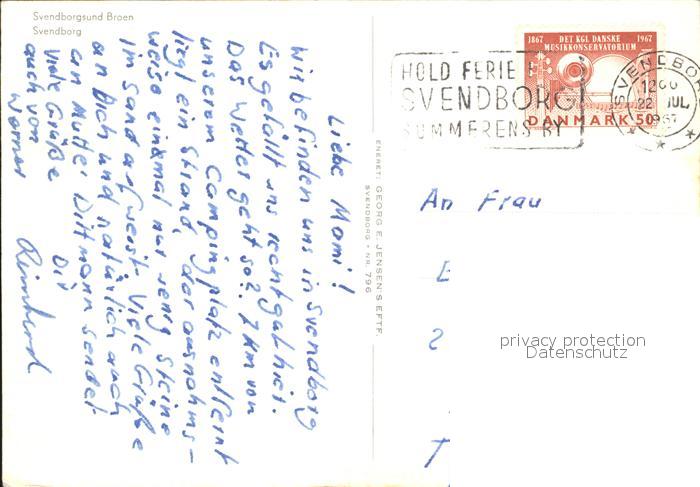 Svendborgsund Broen
Svendborg
Liebe Mami!
Wir befinden uns in Svendborg
Es gefällt uns recht gut hier.
Das Wetter geht so?. 7 km von
unserem Campingplatz entfernt
liegt ein Strand, der ausnahms-
weise einmal nur wenig Steine
im Sand aufweist. Viele Grüße
an Dich und natürlich auch
an Mutter Dittmann sendet
Viele Grüße Dir
auch von Werner Reinhard
ENERET: GEORG E. JENSEN'S EFTF.
SVENDBORG • NR. 796
1867 DET KGL. DANSKE 1967
MUSIKKONSERVATORIUM
DANMARK 50
HOLD FERIE I
SVENDBORG
SOMMERENS BY
SVENDBORG
22 JUL.
1967
An Frau
E
2
T
privacy protection
Datenschutz